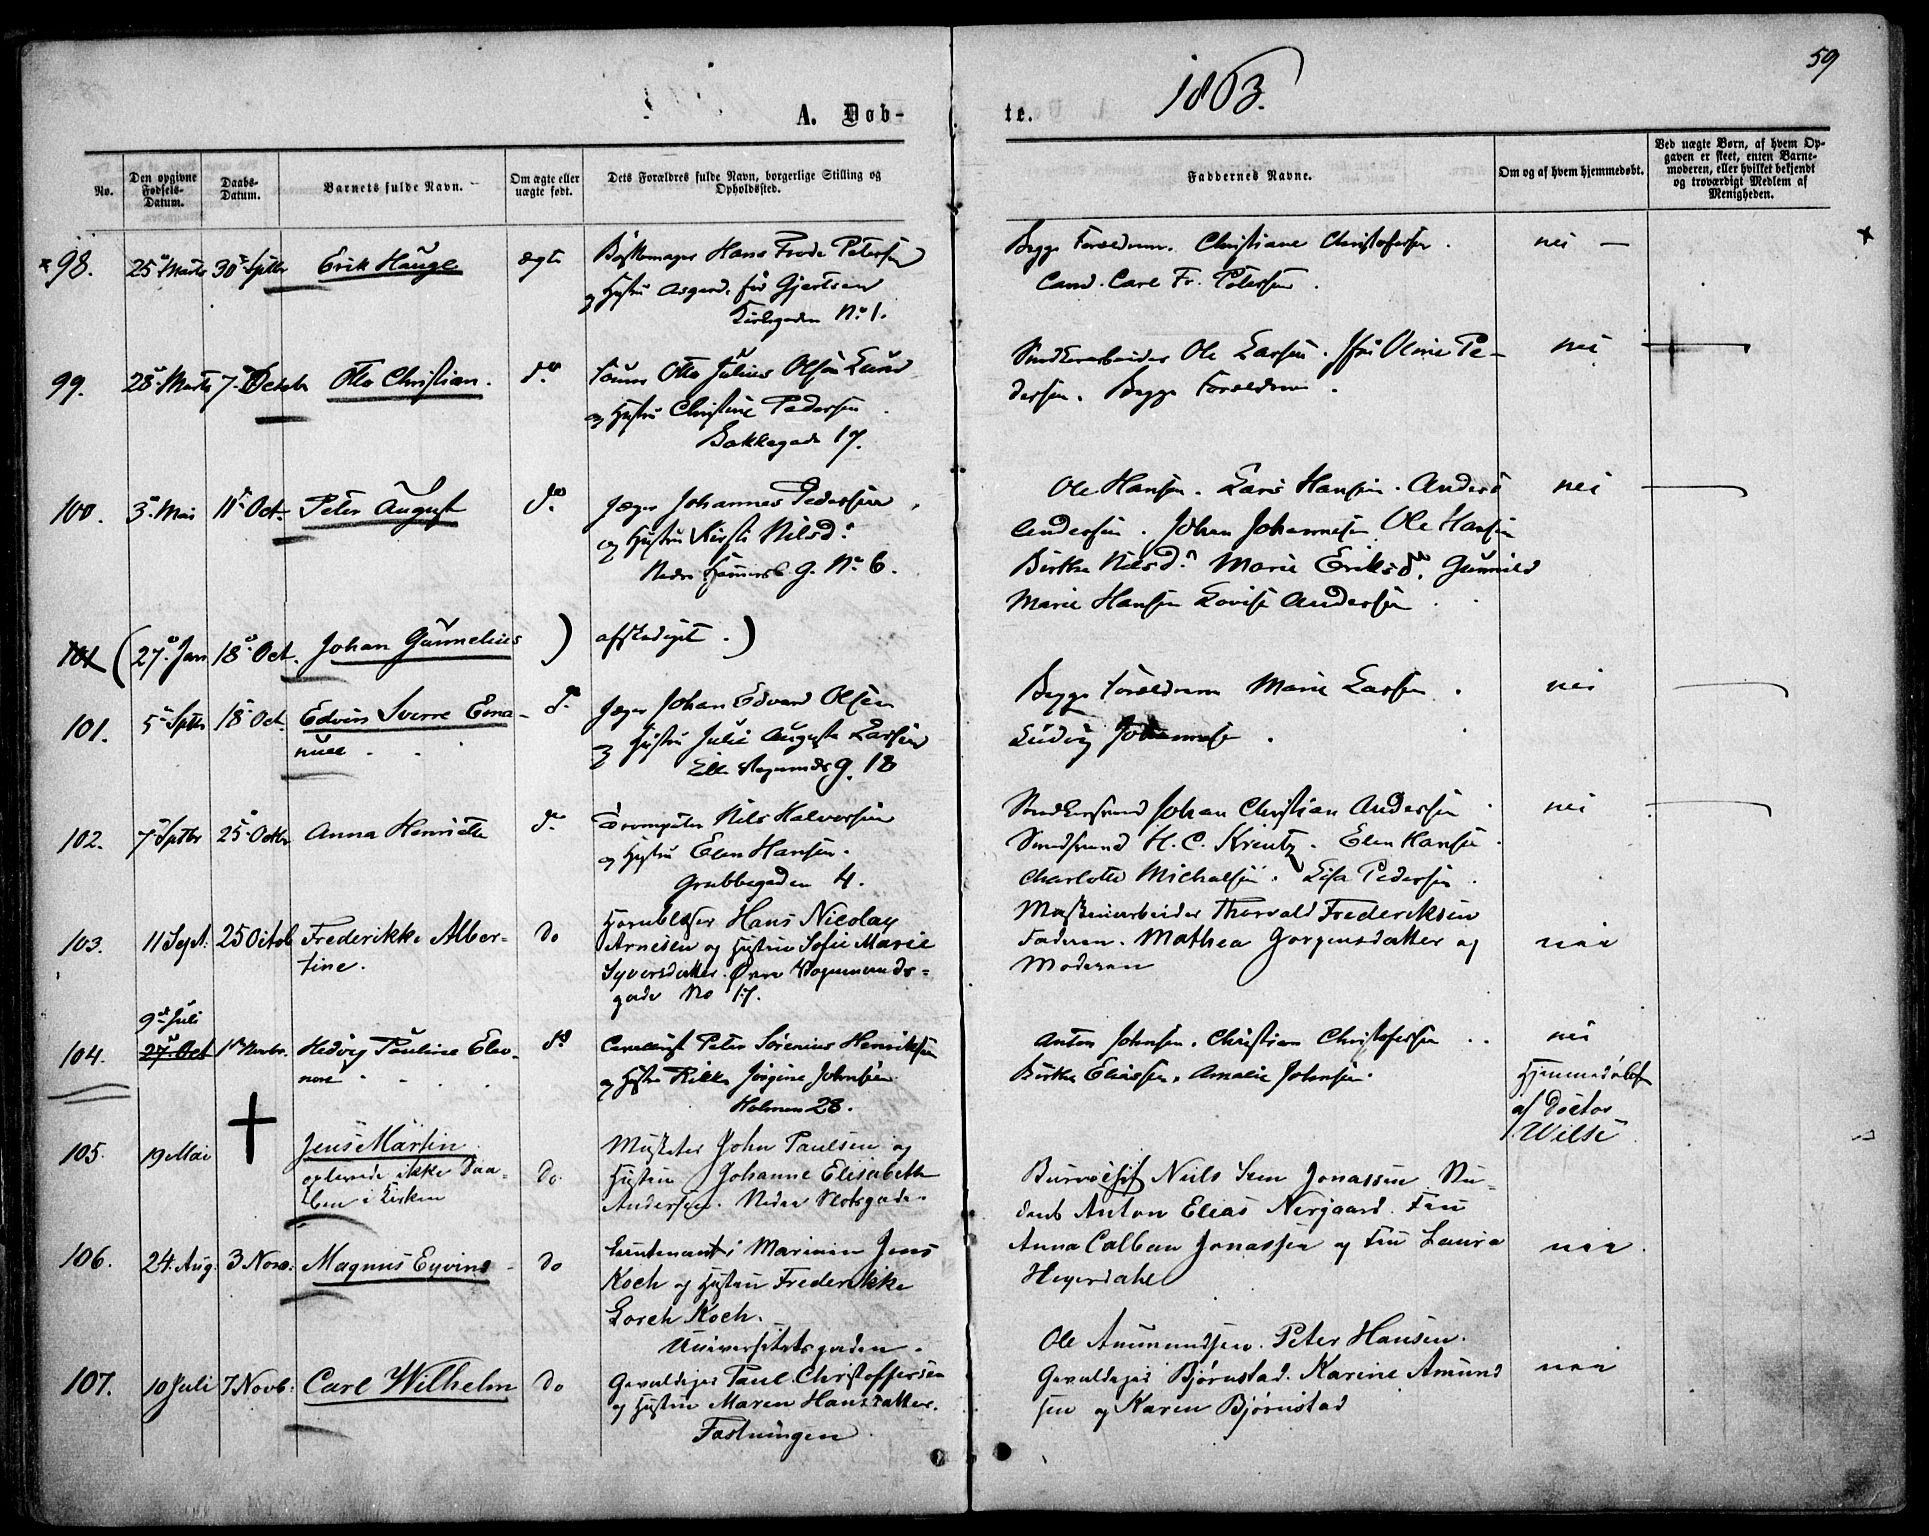 59
1863.
A. Døb-
te.
No.
Den opgivne Fødsels-Datum.
Daabs-Datum.
Barnets fulde Navn.
Om ægte eller uægte født.
Dets Forældres fulde Navn, borgerlige Stilling og Opholdssted.
Faddernes Navne.
Om og af hvem hjemmedøbt.
Ved uægte Børn, af hvem Op-
gaven er skeet, enten Barne-
moderen, eller hvilket bekjendt
og troværdigt Medlem af
Menigheden.
98. 25 Marts 30 Septbr Erik Hauge ægte
Bøssemager Hans Frode Petersen
og Hustru Asgard. fød Gjertsen
Kirkegaden No 1.
Begge Forældrene. Christiane Christofersen.
Cand. Carl Fr. Petersen.
nei
99. 28 Marts 7 Octob Otto Christian. do
Otto Julius Olsen Lund
og Hustru Christine Pedersen
Bakkegade 17.
Ole Larsen. Oline Pe-
dersen. Begge Forældrene.
nei
100. 3 Mai 11 Oct. Peter August do
Jæger Johannes Pedersen
og Hustru Kirsti Nilsd.
Nedre G. No 6.
Ole Hansen. Lars Hansen. Anders
Andersen. Johan Johannesen Ole Hansen
Birthe Nilsd. Marie Eriksd. Gunnild
Marie Hansen Lovise Andersen
nei
101 (27 Jan 18 Oct. Johan Gunnelius) afskediget.)
101. 5 Septbr 18 Oct. Edvin Sverre Ema-
nuel
do
Jæger Johan Edvard Olsen
og Hustru Julie Augusta Larsen
g. 18
Begge Forældrene Marie Larsen.
Ludvig Johannesen.
nei
102. 7 Septbr 25 Octbr Anna Henriette do
Nils Halvorsen
og Hustru Elen Hansen.
Grubbegaden 4.
Johan Christian Andersen
H. C. Kreutz. Elen Hansen.
Charlotte Michalsen. Lisa Pedersen.
nei
103. 11 Sept. 25 Octob Frederikke Alber-
tine.
do
Hornblæser Hans Nicolay
Arnesen og Hustru Sofie Marie
Syversdatter. Øvre Vognmands-
gade No 17.
Maskinarbeider Thorvald Frederiksen
Faderen. Mathea Jørgensdatter og
Moderen
nei
9de Juli
104. 27 Oct 1 Novbr. Hedvig Pauline Eleo-
nore
do
Peter Sørenius Henriksen
og Hustru Rikke Jørgine Johnsen
Holmen 28.
Anton Johnsen. Christian Christofersen
Birthe Eliassen. Amalie Johnsen.
nei
Hjemmedøbt
af Doctor
Wilse
105. 19 Mai Jens Martin
oplevede ikke Daa-
ben i Kirken
do
Musketer John Paulsen og
Hustru Johanne Elisabeth
Andersen. Nedre Slotsgade.
106. 24 Aug. 3 Novb. Magnus Eyvind do
Lieutenant i Marinen Jens
Koch og Hustru Frederikke
Lorch Koch.
Universitetsgaden.
Bureauchef Niels Sem Jonassen Stu-
dent Anton Elias Nergaard. Fru
Anna Calban Jonassen og Fru Laura
Heyerdahl
nei
107. 10 Juli 7 Novb. Carl Wilhelm do
Gevaldiger Paul Christoffersen
og Hustru Maren Hansdatter.
Fæstningen.
Ole Amundsen. Peter Hansen.
Gevaldiger Bjørnstad. Karine Amund
sen og Karen Bjørnstad
nei